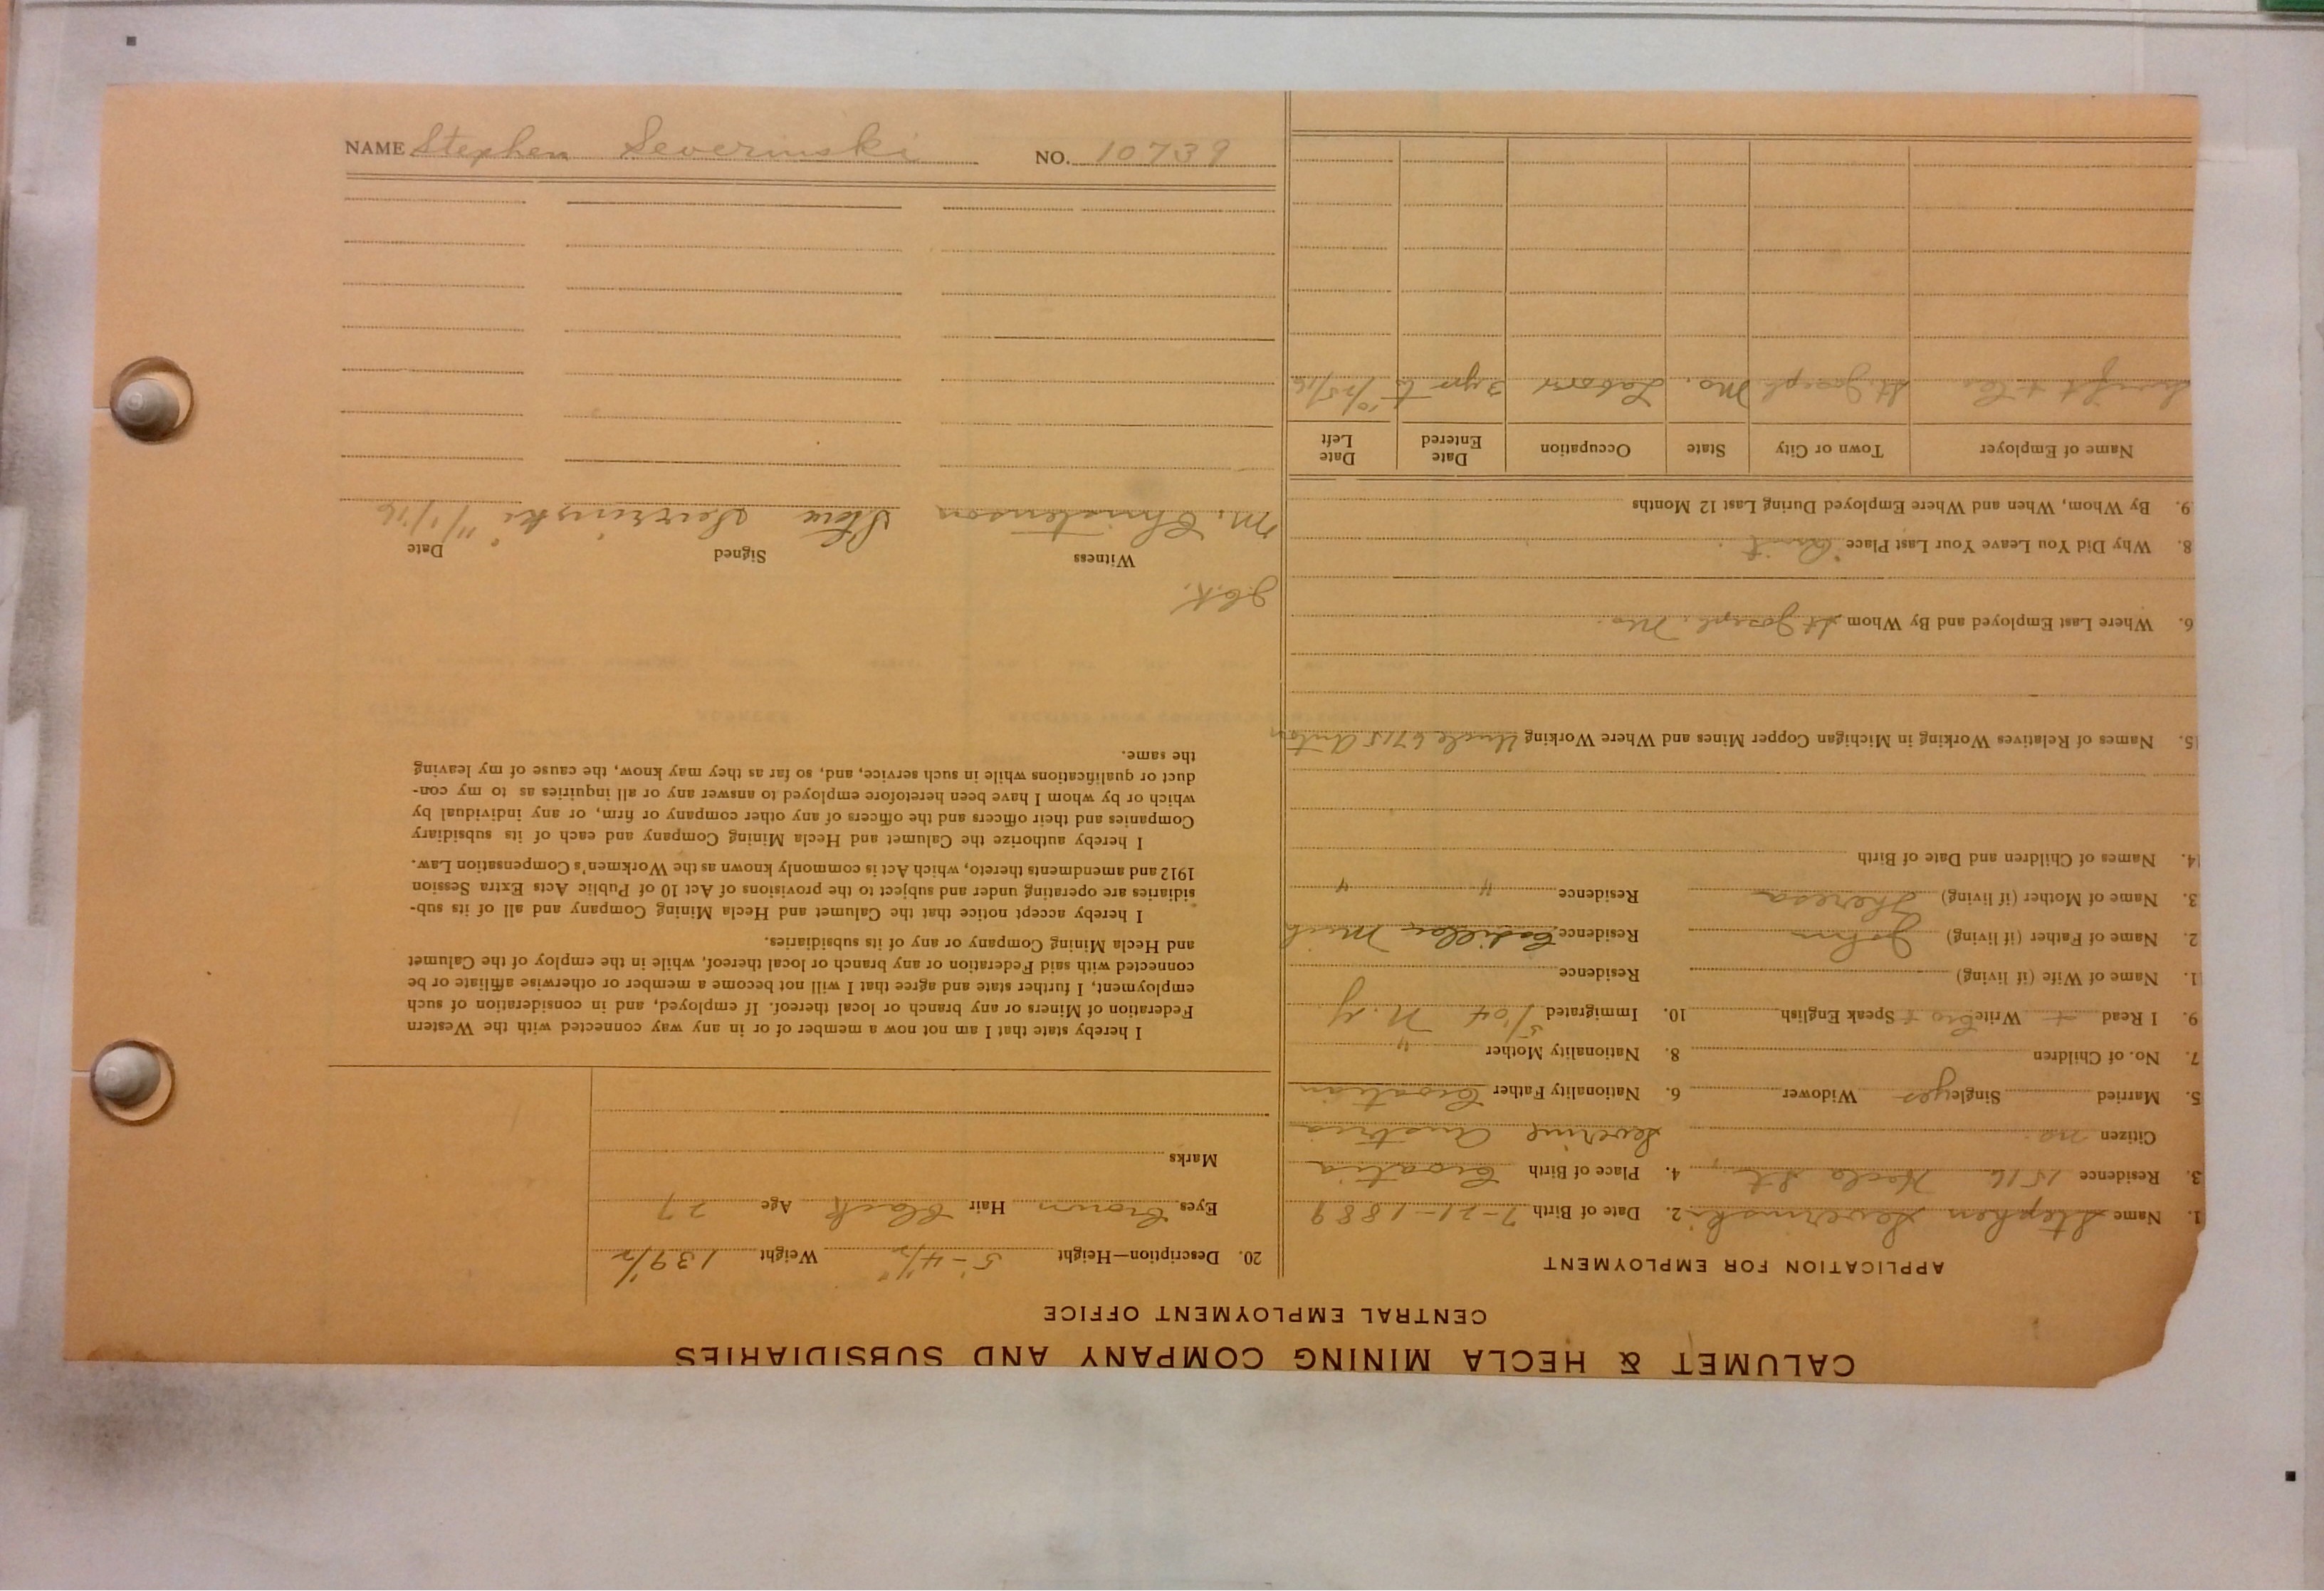 CALUMET & HECLA MINING COMPANY AND SUBSIDIARIES
CENTRAL EMPLOYMENT OFFICE
APPLICATION FOR EMPLOYMENT
1. Name Stephen Severinski 2. Date of Birth 7-21-1889
3. Residence 1516 Hecla St., 4. Place of Birth Croatia
Citizen no. Severine Austria
5. Married Single yes Widower 6. Nationality Father Croatian
7. No. of Children 8. Nationality Mother "
9. I Read + Write Cro + Speak English 10. Immigrated 5/04 N.Y
11. Name of Wife (if living) Residence
2. Name of Father (if living) John Residence Cadillac Mich
3. Name of Mother (if living) Theresa Residence " "
14. Names of Children and Date of Birth
15. Names of Relatives Working in Michigan Copper Mines and Where Working Uncle 6715 Anton
6. Where Last Employed and By Whom St Joseph. Mo.
8. Why Did You Leave Your Last Place Quit
9. By Whom, When and Where Employed During Last 12 Months
Name of Employer Town or City State Occupation Date Entered Date Left
& Co. St. Joseph Mo. Laborer 3 yrs to 10/25/16
20. Description—Height 5'-4 1/2" Weight 139 1/2
Eyes Brown Hair Black Age 27
Marks
I hereby state that I am not now a member of or in any way connected with the Western
Federation of Miners or any branch or local thereof. If employed, and in consideration of such
employment, I further state and agree that I will not become a member or otherwise affiliate or be
connected with said Federation or any branch or local thereof, while in the employ of the Calumet
and Hecla Mining Company or any of its subsidiaries.
I hereby accept notice that the Calumet and Hecla Mining Company and all of its sub-
sidiaries are operating under and subject to the provisions of Act 10 of Public Acts Extra Session
1912 and amendments thereto, which Act is commonly known as the Workmen's Compensation Law.
I hereby authorize the Calumet and Hecla Mining Company and each of its subsidiary
Companies and their officers and the officers of any other company or firm, or any individual by
which or by whom I have been heretofore employed to answer any or all inquiries as to my con-
duct or qualifications while in such service, and, so far as they may know, the cause of my leaving
the same.
J.C.K.
Witness Signed Date
M. Christenson Steve Severinski 11/1/16
NAME Stephen Severinski NO. 10739